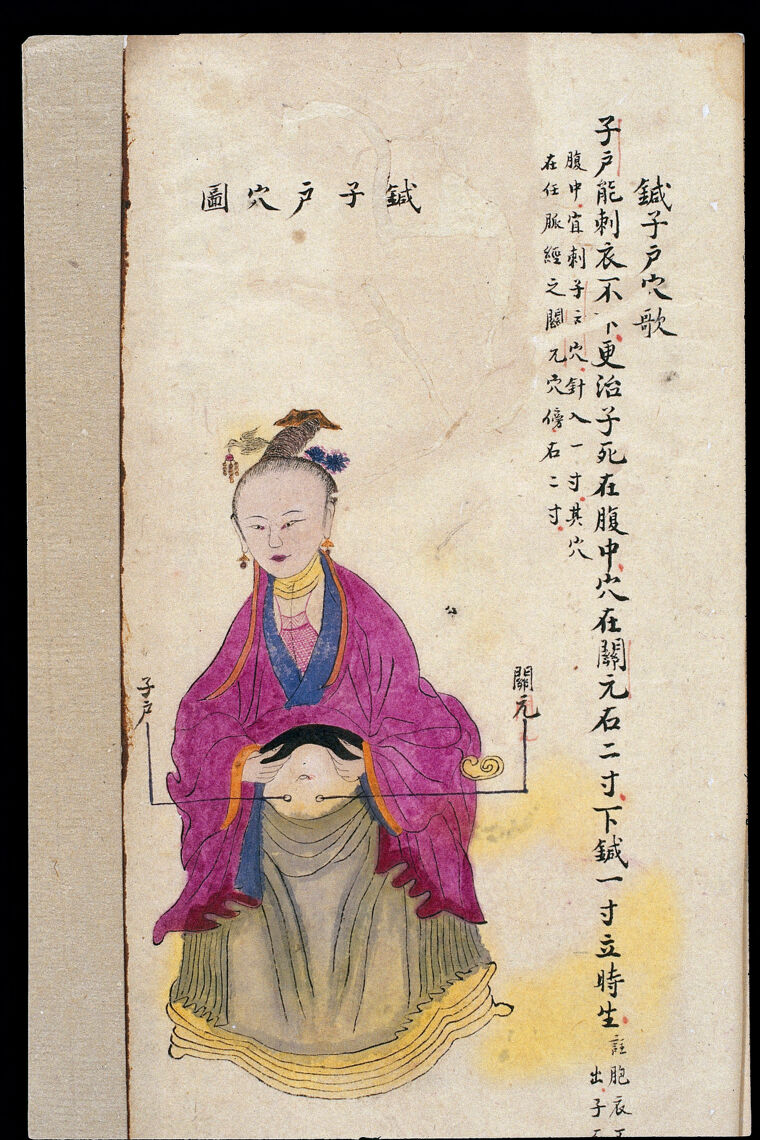 鍼子戶穴歌
子戶能刺衣不下更治子死在腹中穴在關元右二寸下鍼一寸立時生
註胞衣
出子
腹中宜刺子戶穴針入一寸其穴
在任脈經之關元穴傍右二寸
鍼子戶穴圖
關元
子戶